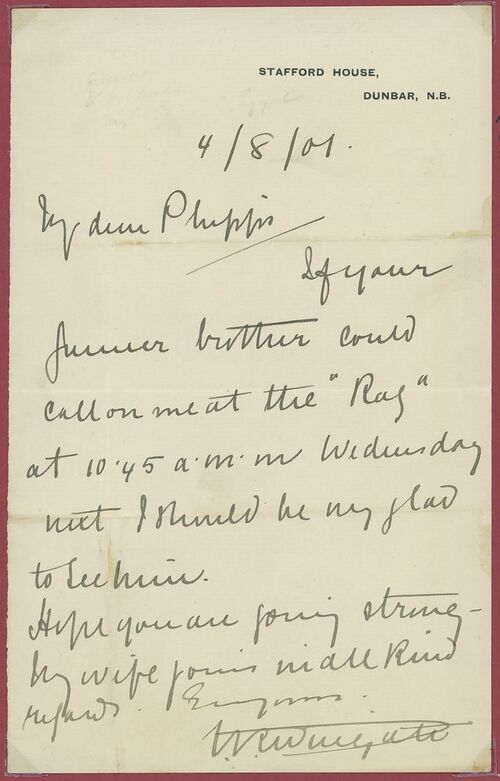 STAFFORD HOUSE,
DUNBAR, N.B.
4/8/01.
My dear Phipps
If your
Gunner brother could
call on me at the "Rag"
at 10.45 a.m. on Wednesday
next I should be very glad
to see him.
Hope you are going strong –
My wife joins in all kind
regards. Ever yours.
Wingate